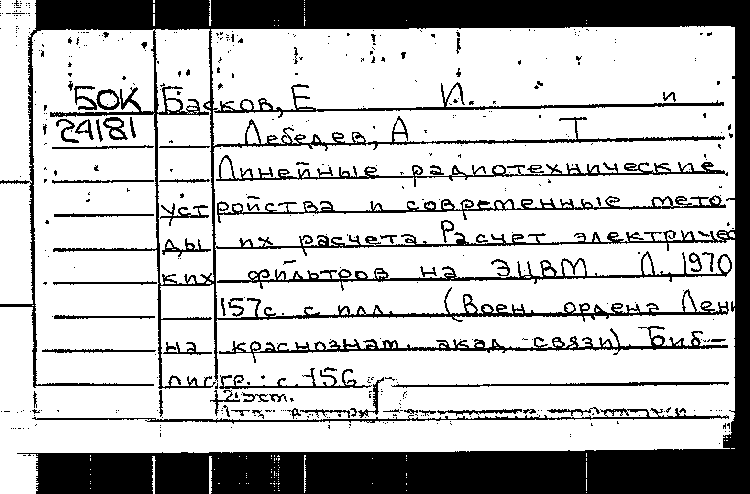 БОК Басков, Е. И. и
24181 Лебедев, А. Т.
Линейные радиотехнические
устройства и современные мето-
ды их расчета. Расчет электричес
ких фильтров на ЭЦВМ. Л., 1970
157с. с илл. (Воен. ордена Лени
на краснознам. акад. связи). Биб-
лиогр.: с. 156
2 экт.